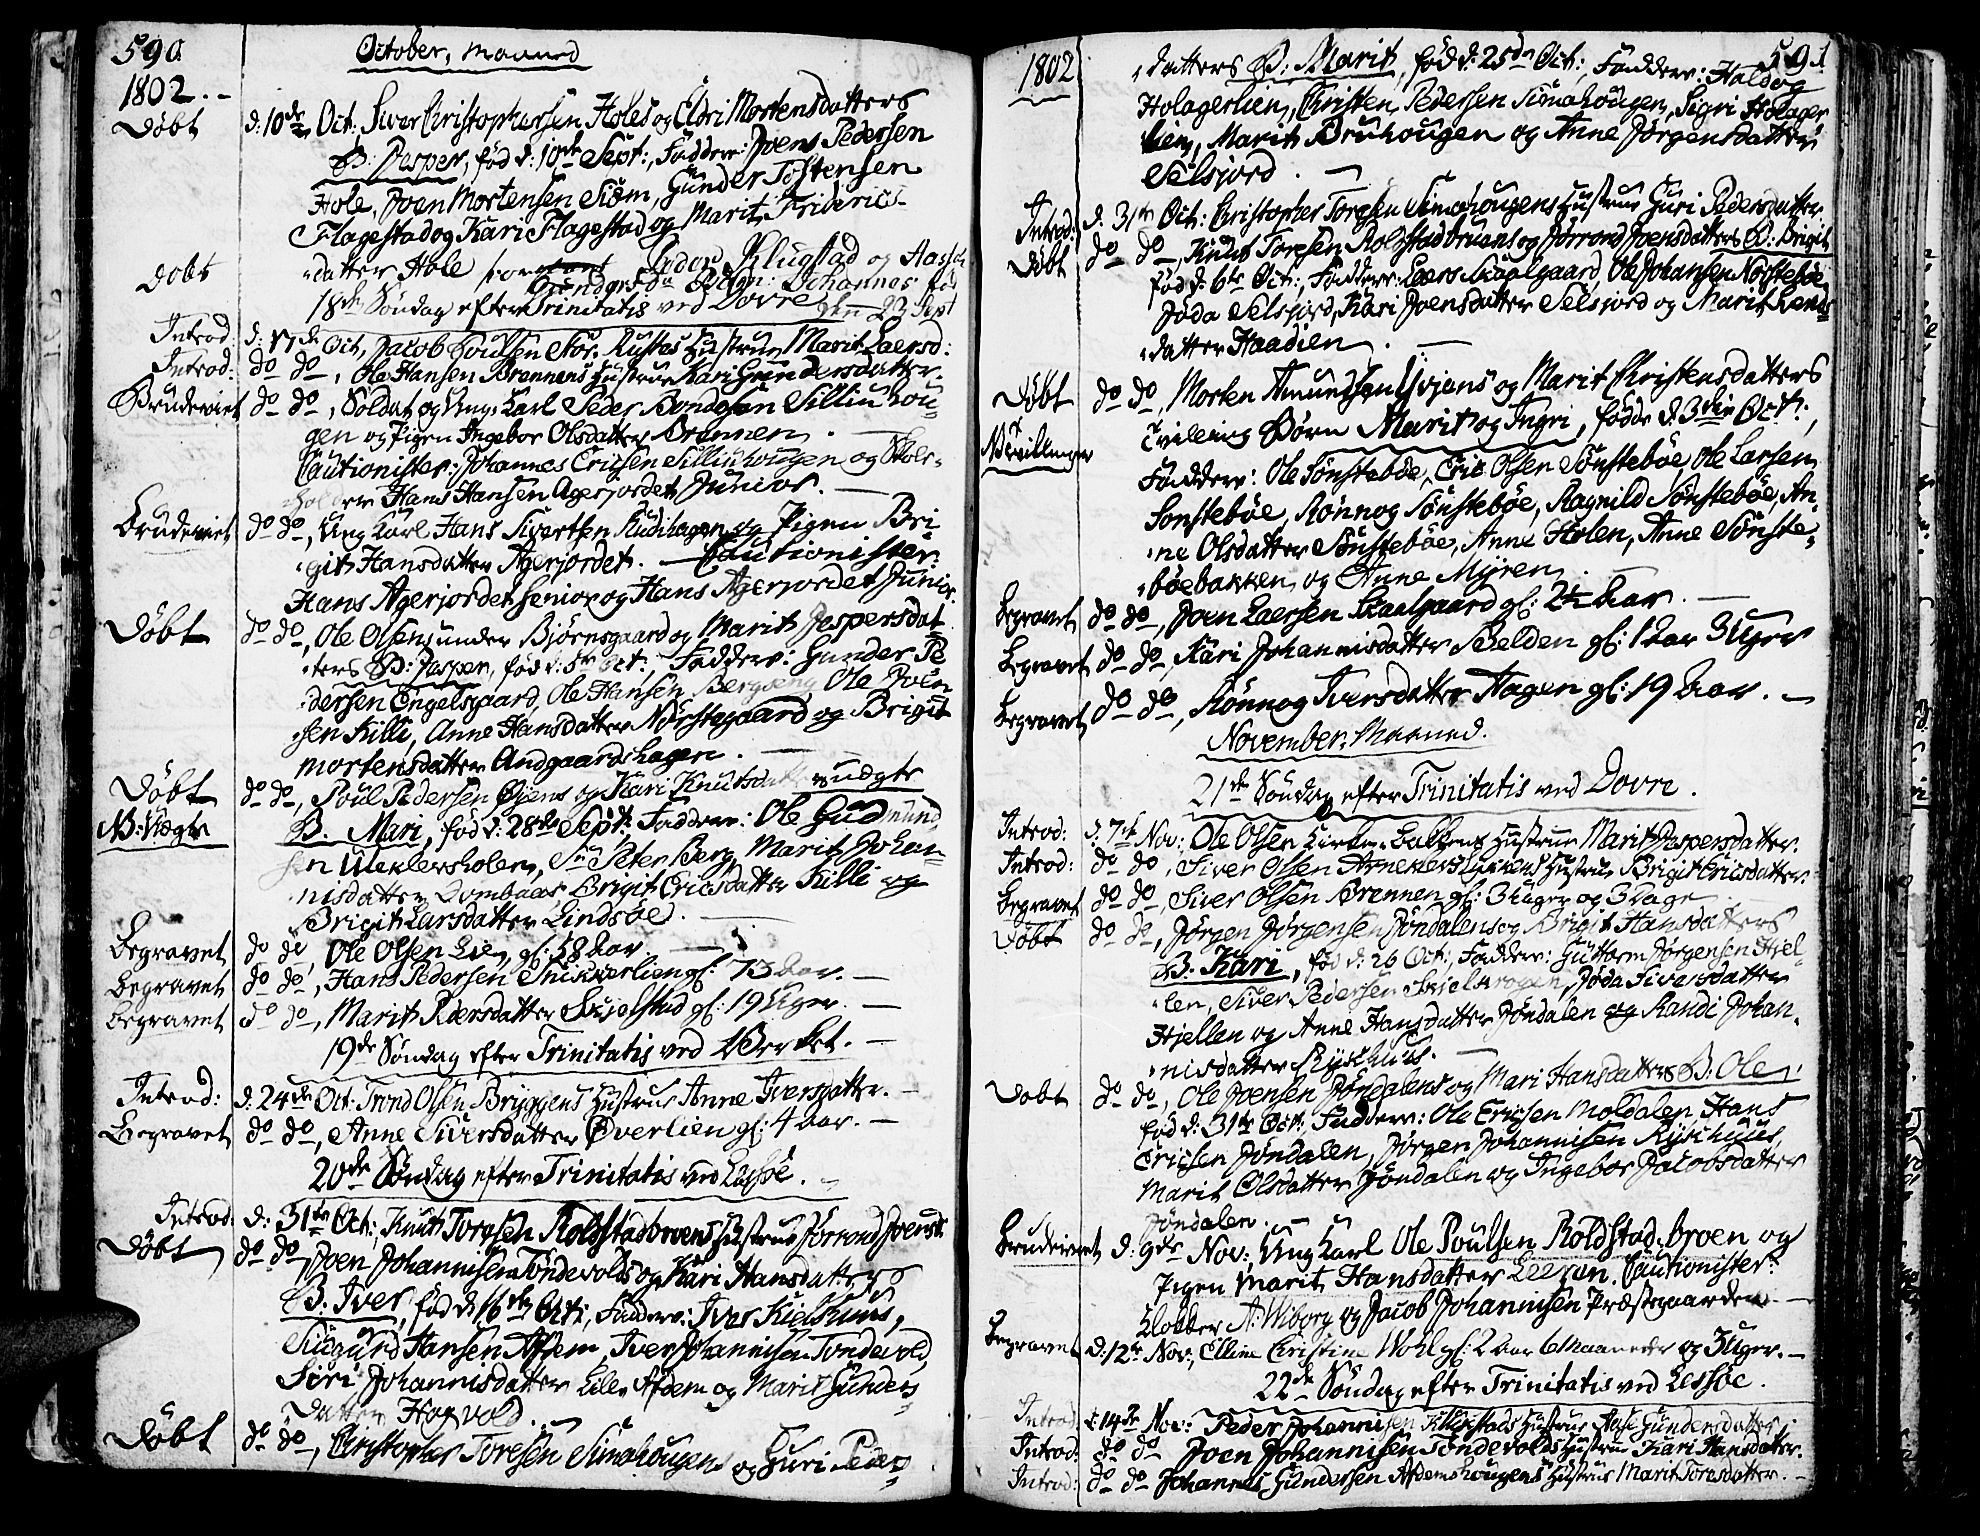 590.
October, Maaned
1802.
Döbt d: 10de Oct: Siver Christophersen Holes og Eldri Mortensdatters
B: Jesper, föd d: 10de Sept:, Faddere: Joens Pedersen
Hole, Joen Mortensen Siöm, Gunder Tostensen
Flagestad og Kari Flagestad og Marit Friderics-
datter Hole
Döbt Peder Klugstad og Aasse
Barn: Johannes föd
18de Söndag efter Trinitatis ved Dovre den 23 Sept
Introd: d: 17de Oct, Jacob Poulsen Stor-Rustes Hustrue Marit Laersd:
Introd: do do, Ole Hansen Brennens Hustrue Kari Gundersdatter.
Brudeviet do do, Soldat og Ung Karl Peder Bondesen Silliuhou-
gen og Pigen Ingebor Olsdatter Brennen.
Cautionister: Johannes Ericsen Silliuhougen og Skole-
holder Hans Hansen Agerjordet Junior.
Brudeviet do do, Ung Karl Hans Sivertsen Rudihagen og Pigen Bri-
git Hansdatter Agerjordet. Cautionister:
Hans Agerjordet Senior og Hans Agerjordet Junior.
Döbt do do, Ole Olsens under Bjørnsgaard og Marit Jespersdat-
ters B: Jesper, föd d: 5te Oct:, Faddere: Gunder Pe-
dersen Engelsgaard, Ole Hansen Bergseng, Ole Joen-
sen Killi, Anne Hansdatter Norstegaard og Brigit
Mortensdatter Andgaardshagen.
Döbt do do, Poul Pedersen Öyens og Kari Knutsdatters uægte
NB: Uægte B. Mari, föd d: 28de Sept:, Faddere: Ole Gudmund-
sen Meklersholen, Sr Peter Berg, Marit Johan-
nisdatter Dombaas, Brigit Ericsdatter Killi og
Brigit Larsdatter Lindsöe.
Begravet do do, Ole Olsen Lie, gl: 58 Aar.
Begravet do do, Hans Pedersen Snikkerlien gl: 73 Aar.
Begravet do do, Marit Pedersdatter Skjelstad gl: 19 Uger.
19de Söndag efter Trinitatis ved Værket.
Introd: d: 24de Oct: Trond Olsen Bryggens Hustrue Anne Iversdatter.
Begravet do do, Anne Siversdatter Øverlien gl: 4 Aar.
20de Söndag efter Trinitatis ved Lessöe.
Introd: d: 31te Oct:, Knut Toresen Rolstadbroens Hustrue Jorrond Joensd:
Döbt do do, Joen Johannisen Töndevolds og Kari Hansdatters
B. Iver, föd d: 16de Oct:, Faddere: Iver Kielshuus,
Siugurd Hansen Afdem, Iver Johannisen Tondevold,
Siri Johannisdatter Lille Afdem og Marit Gunders-
datter Hogvold.
Döbt do do, Christopher Toresen Simahougens og Guri Peders-
591
1802 datters B: Marit, föd d: 25de Oct:, Faddere: Haldog
Holagerlien, Christen Pedersen Simahougen, Sigri Holager-
lien, Marit Bruhougen og Anne Jörgensdatter
Selsjord.
Introd: d: 31te Oct: Christopher Toresen Simahougens Hustrue Guri Pedersdatter.
Döbt do do, Knut Toresen Rolstadbruens og Jörrond Joensdatters B: Brigit
föd d: 6te Oct:, Faddere: Laers Skaalgaard, Ole Johansen Norsteböe,
Jöda Selsjord, Kari Joensdatter Selsjord og Marit
datter Haadien.
Döbt do do, Morten Amundsen og Marit Christensdatters
NB: Tvillinger Tvilling Börn Marit og Ingri, födde d: 3die Oct:,
Faddere: Ole Sönsteböe, Eric Olsen Sönsteböe, Ole Larsen
Sonsteböe, Rönnog Sönsteböe, Ragnild Sönsteböe, An-
ne Olsdatter Sönsteböe, Anne Holen, Anne Sönste-
böebakken og Anne Myren.
Begravet do do, Joen Laersen Skaalgaard gl: 2½ Aar.
Begravet do do, Kari Johannisdatter Selden gl: 1 Aar 3 Uger
Begravet do do, Rönnog Iversdatter Hagen gl: 19 Aar.
November, Maaned.
21de Söndag efter Trinitatis ved Dovre.
Introd: d: 7de Nov: Ole Olsen Kirke-Bakkens Hustrue Marit Jespersdatter.
Introd: do do, Siver Olsen Hustrue Brigit Ericsdatter.
Begravet do do, Siver Olsen Brennen gl: 3 Uger og 3 Dage
Döbt do do, Jörgen Jörgensen Jöndalens og Brigit Hansdatters
B. Kari, föd d: 26 Oct:, Faddere: Guttorm Jörgensen Hjel-
len, Siver Pedersen Skjelkrogen, Jöda Siversdatter
Hjellen og Anne Hansdatter Jöndalen og Randi Johan-
nisdatter Ryschuus.
Döbt do do, Ole Joensen Jöndalens og Mari Hansdatters B: Ole,
föd d: 31te Oct:, Faddere: Ole Ericsen Moldalen, Hans
Ericsen Jöndalen, Jörgen Johannisen Ryschuus,
Marit Olsdatter Jöndalen og Ingebor Jacobsdatter
Jöndalen.
Brudeviet d: 9de Nov: Ung Karl Ole Poulsen Roldstad-broen og
Pigen Marit Hansdatter Leeren. Cautionister:
Klokker A: Wiborg og Jacob Johannisen Præstegaarden
Begravet d: 12te Nov:, Elline Christine Wohl gl: 2 Aar 6 Maaneder og 3 Uger.
22de Söndag efter Trinitatis ved Lessöe.
Introd: d: 14de Nov: Peder Johannisen Klukstads Hustrue Aase Gundersdatter.
Introd: do do Joen Johannisen Töndevolds Hustrue Kari Hansdatter.
Introd: do do Johannes Gundersen Afdemshougens Hustrue Marit Toresdatter.